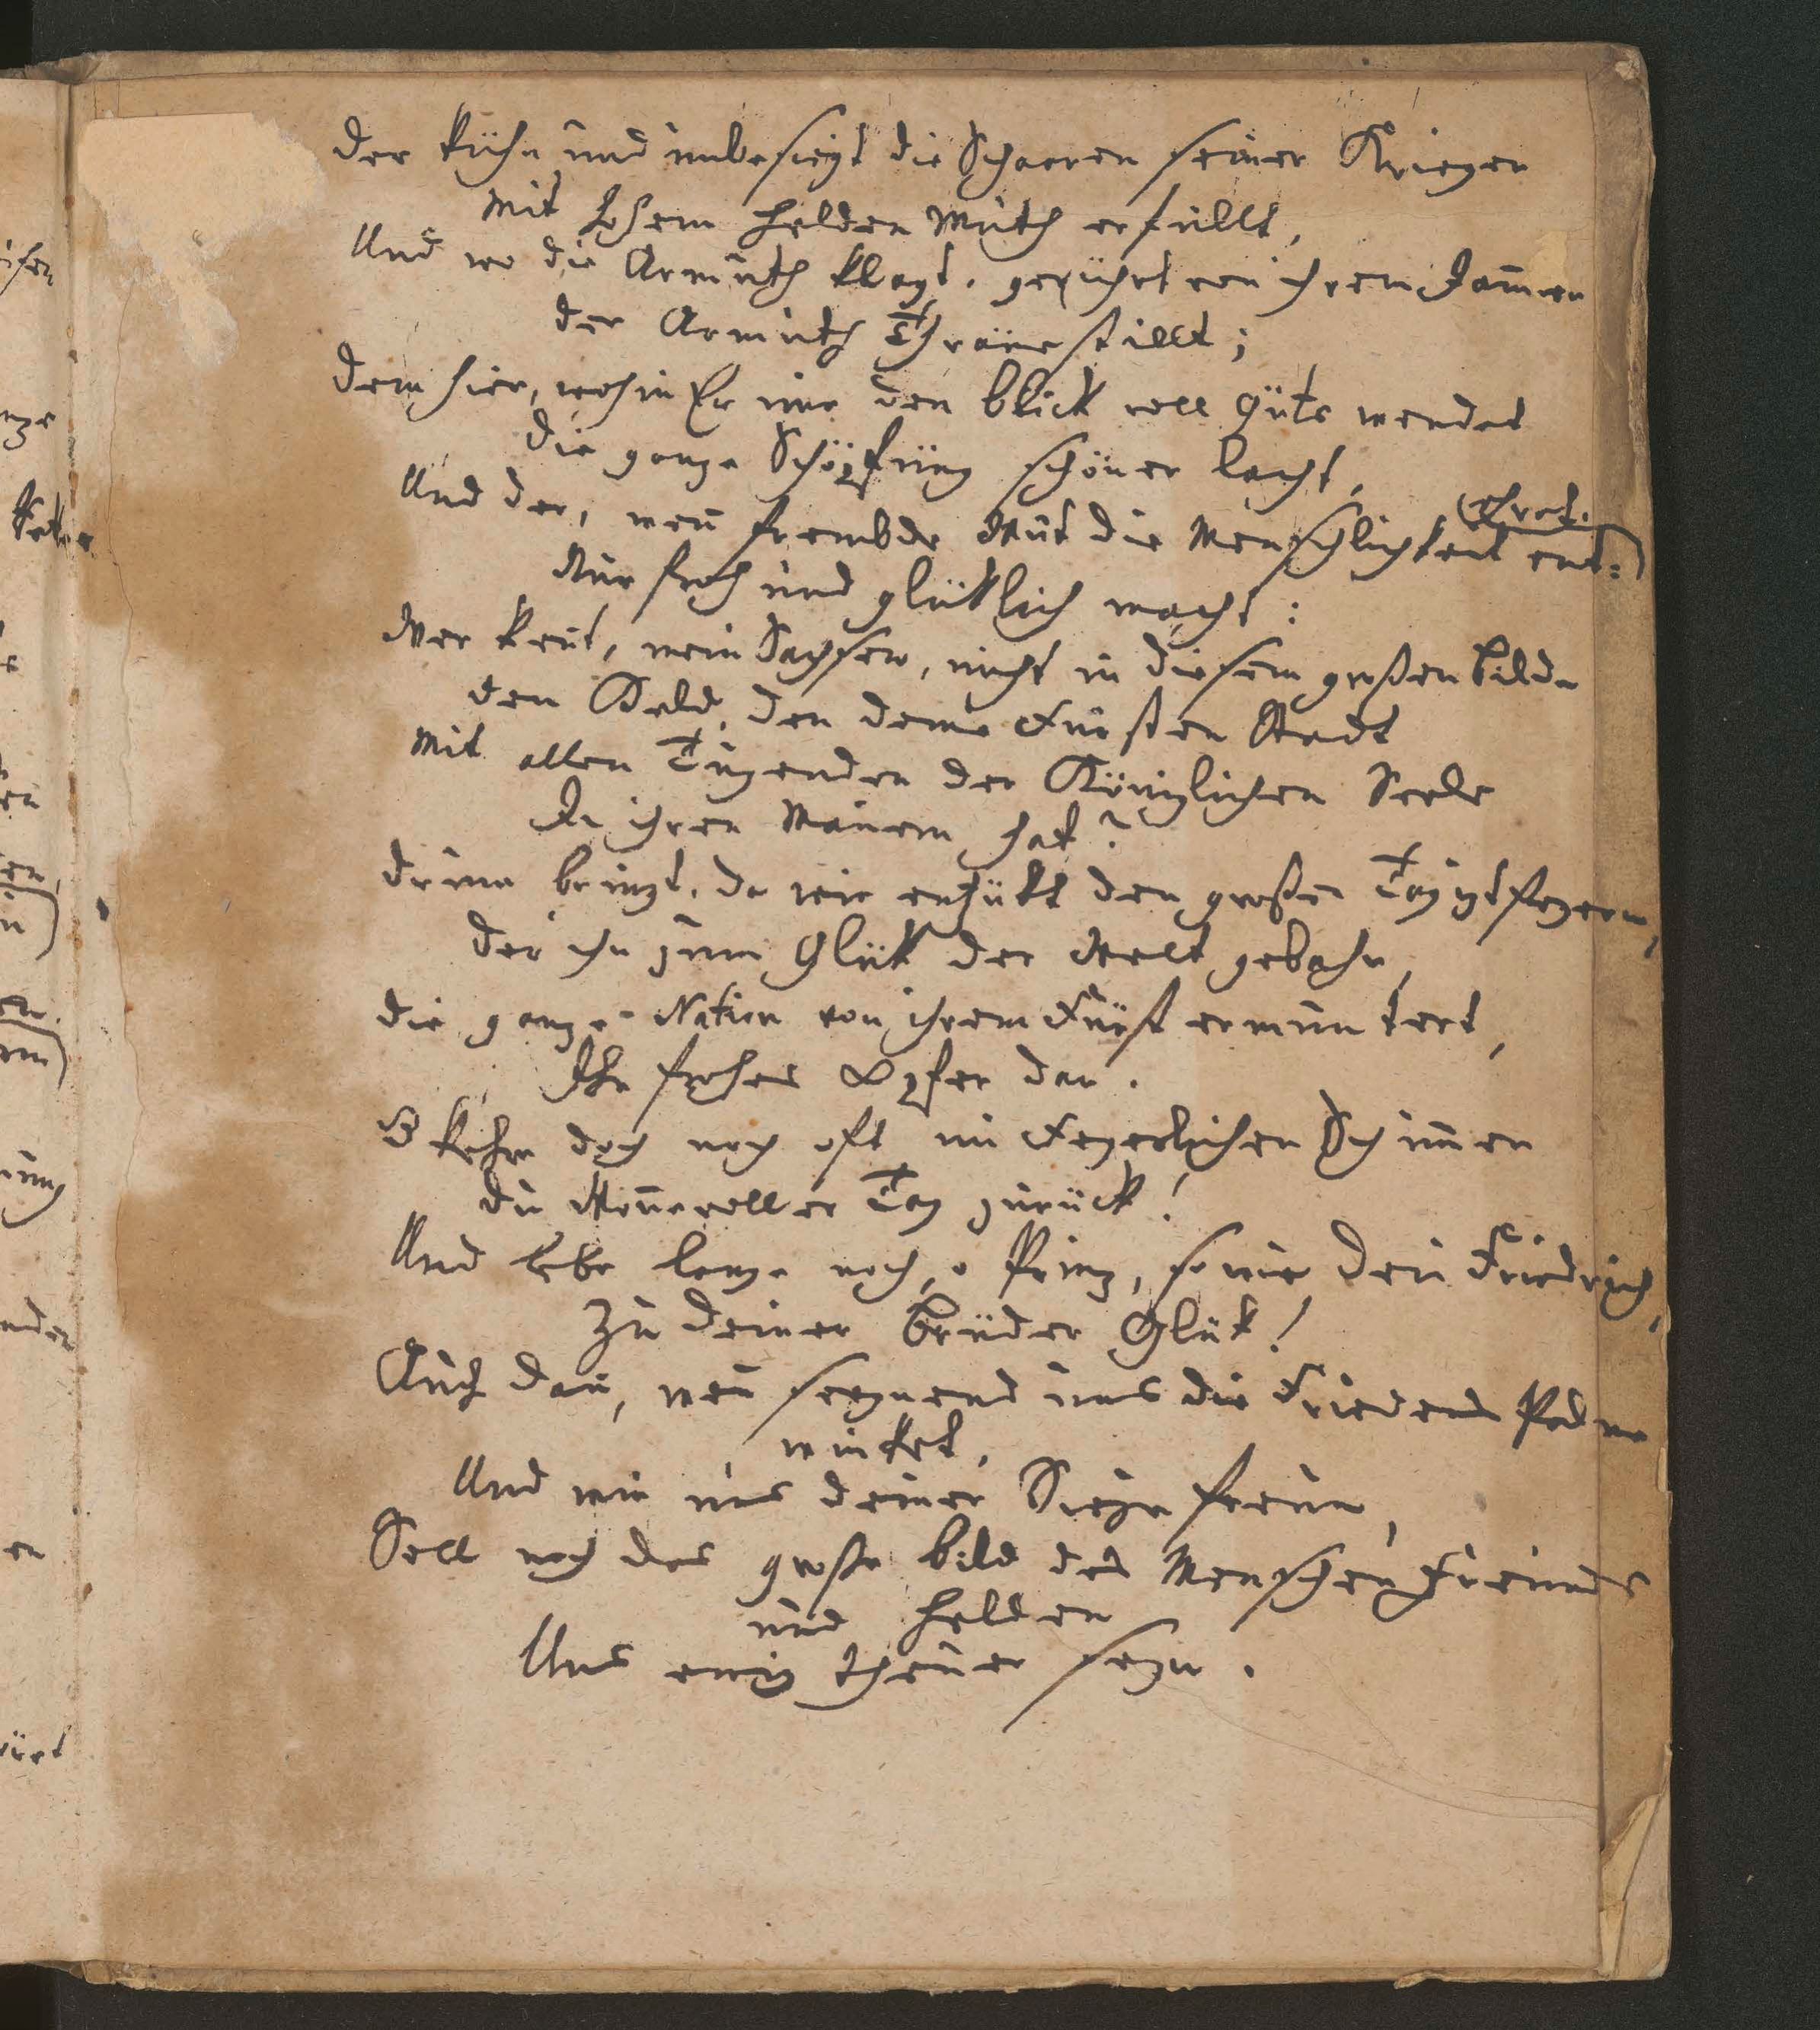 Der kühn und unbesiegt die Schaaren seiner Krieger
Mit hohem Helden Muth erfüllt,
Und wo die Armuth klagt, gerührt von ihrem Jam̄er
Der Armuth Thräne stillt;
Dem hier, wohin Er nur den Blick voll Güte wendet
Die ganze Schöpfung schöner lacht,
Und der, wen̄ frembde Wut die Menschlichkeit ent=
(Ehret.
Nur froh und glüklich macht:
Wer ken̄t, mein Sachsen, nicht in diesem großen Bilde
Den Held, den deine Fürsten Stadt
Mit allen Tugenden der Königlichen Seele
In ihren Mauern hat?
Drum bringt, da wir entzükt den großen Tag izt feyern,
Der ihn zum Glük der Welt gebahr,
Die ganze Nation von ihrem Fürst ermuntert,
Ihr frohes Opfer dar.
O kehre doch noch oft im Feyerlichen Schim̄er
Du Won̄evoller Tag zurück!
Und lebe lange noch, o Prinz, so wie dein Friedrich,
Zu deiner Brüder Glük!
Auch dan̄, wen̄ seegnend uns die Friedens Palme
winket,
Und wir uns deiner Siege freun,
Soll noch das große Bild des Menschen Freundes
und Helden
Uns ewig theuer seyn.